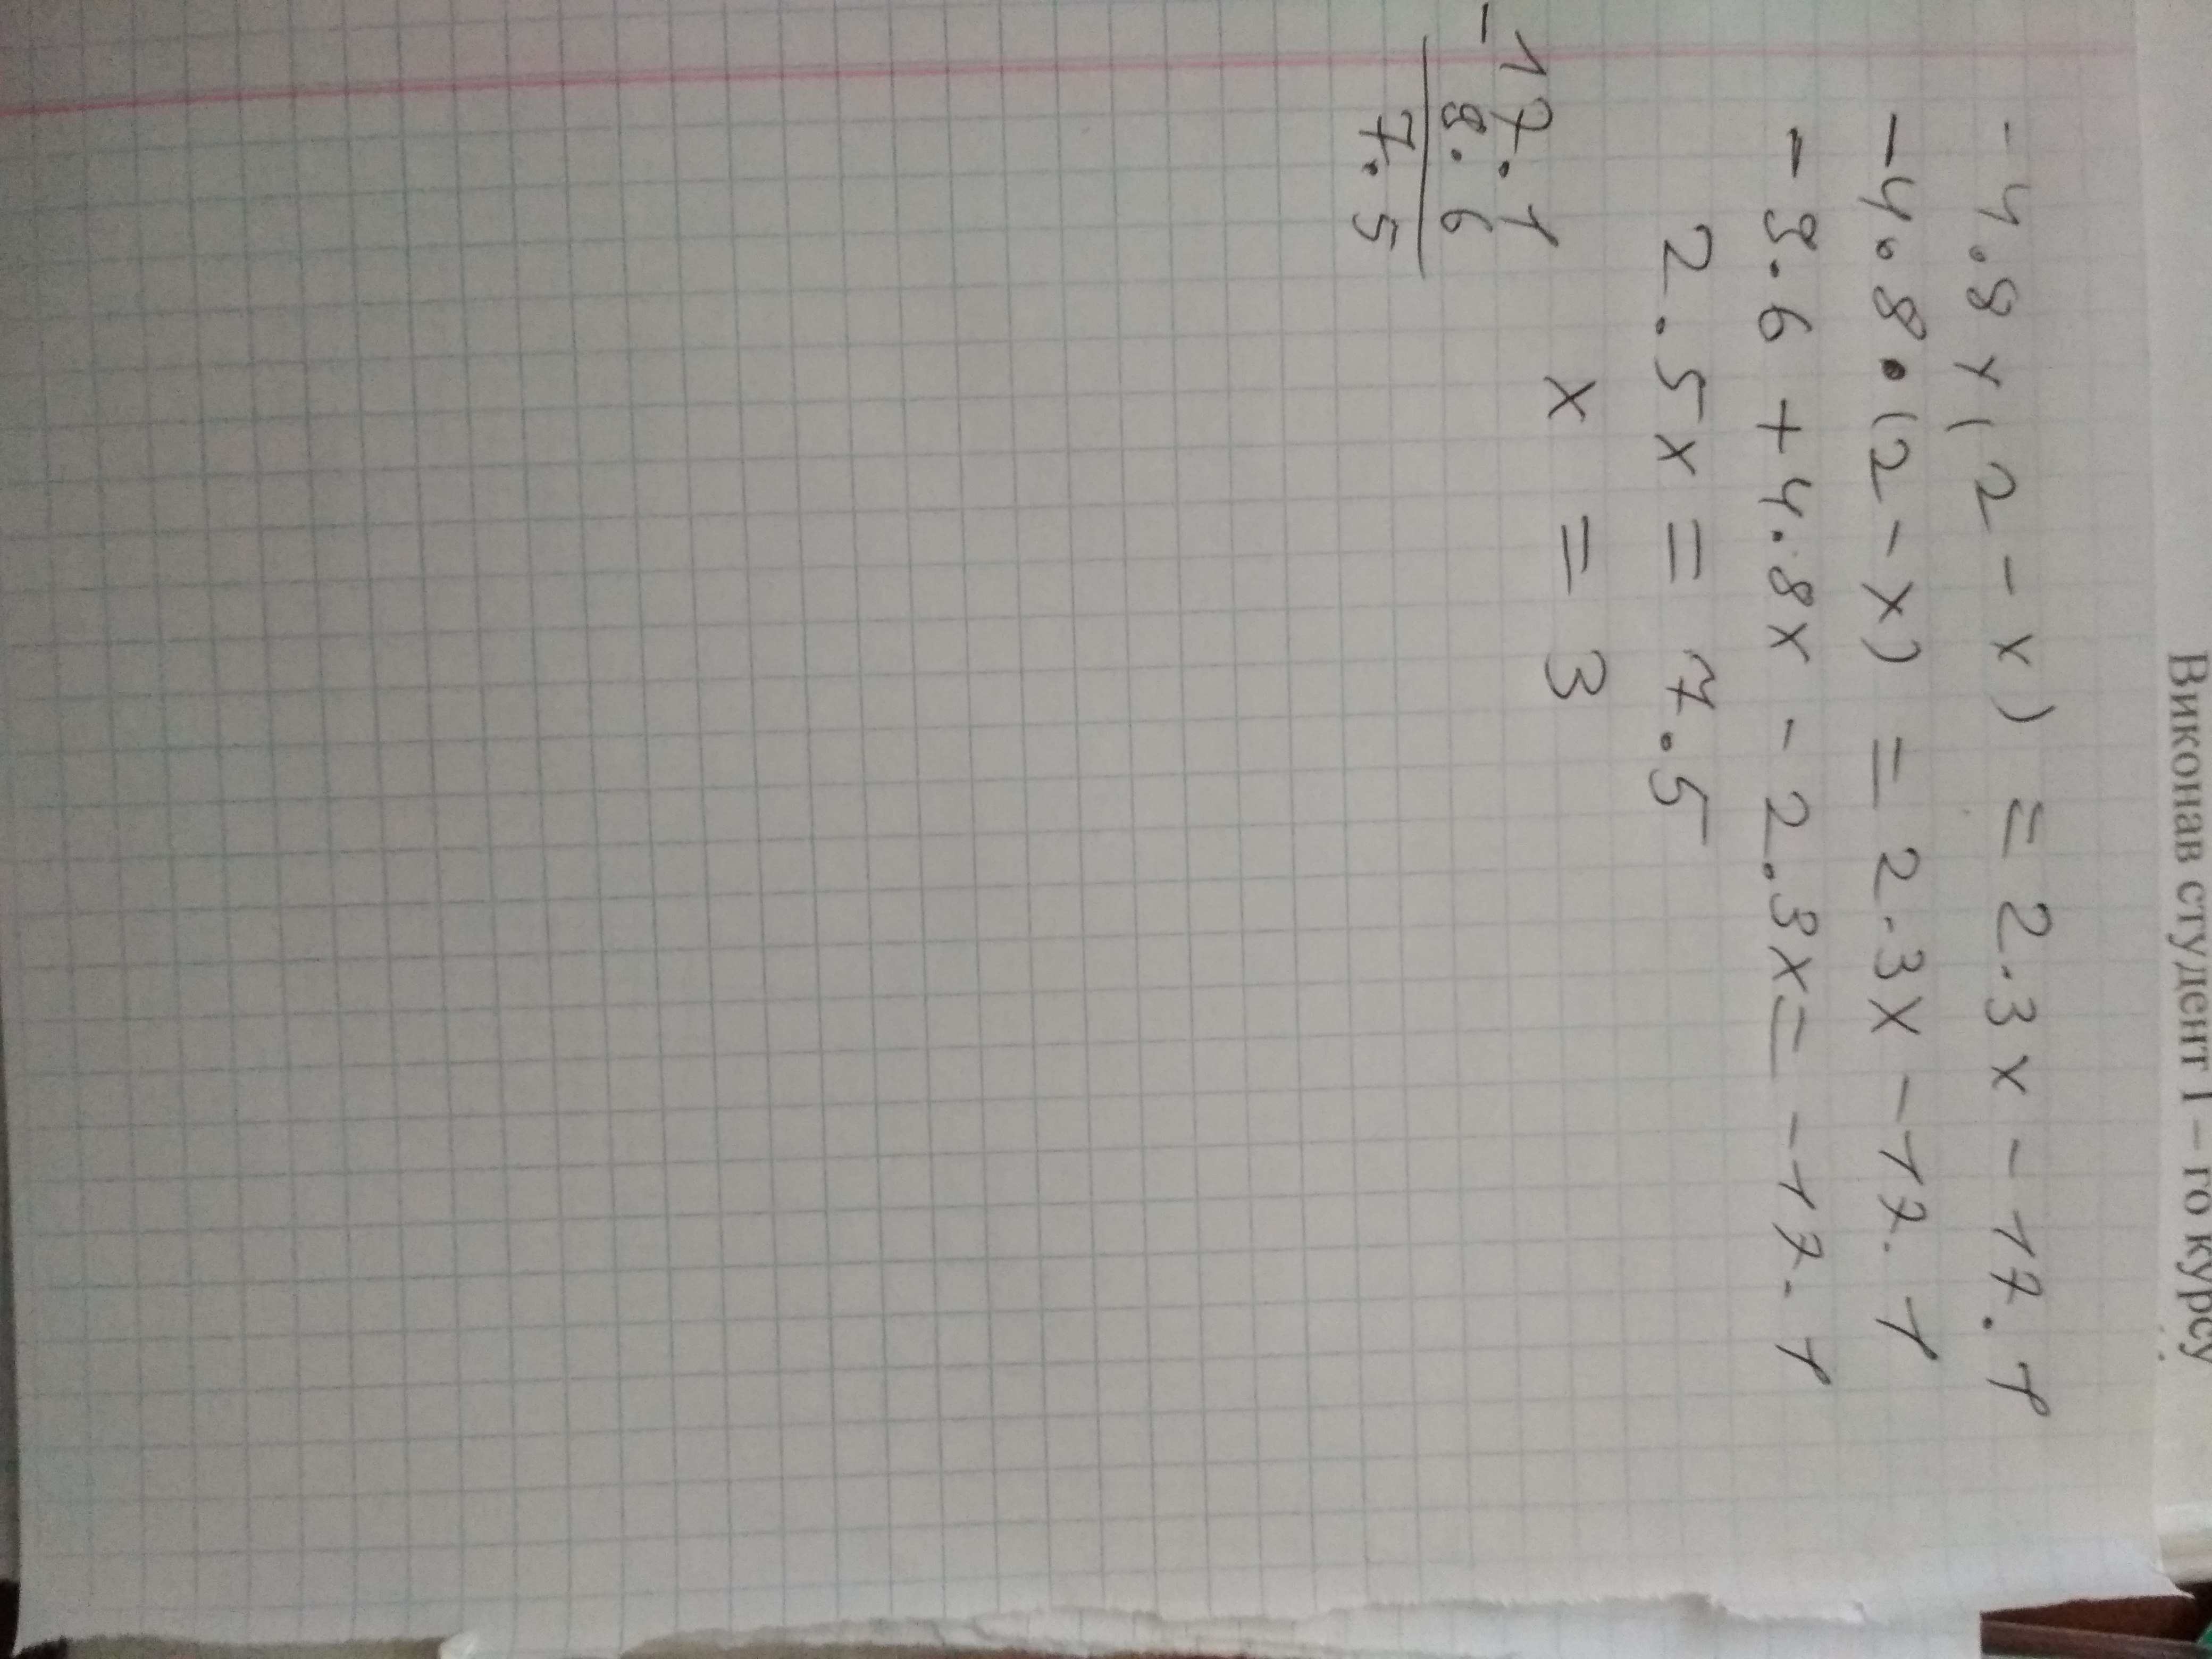 Виконав студент І – го курсу
-4.8 × (2 - x) = 2.3x - 17.1
-4.8 • (2 - x) = 2.3x - 17.1
-9.6 + 4.8x - 2.3x = -17.1
2.5x = 7.5
x = 3
-17.1
9.6
7.5